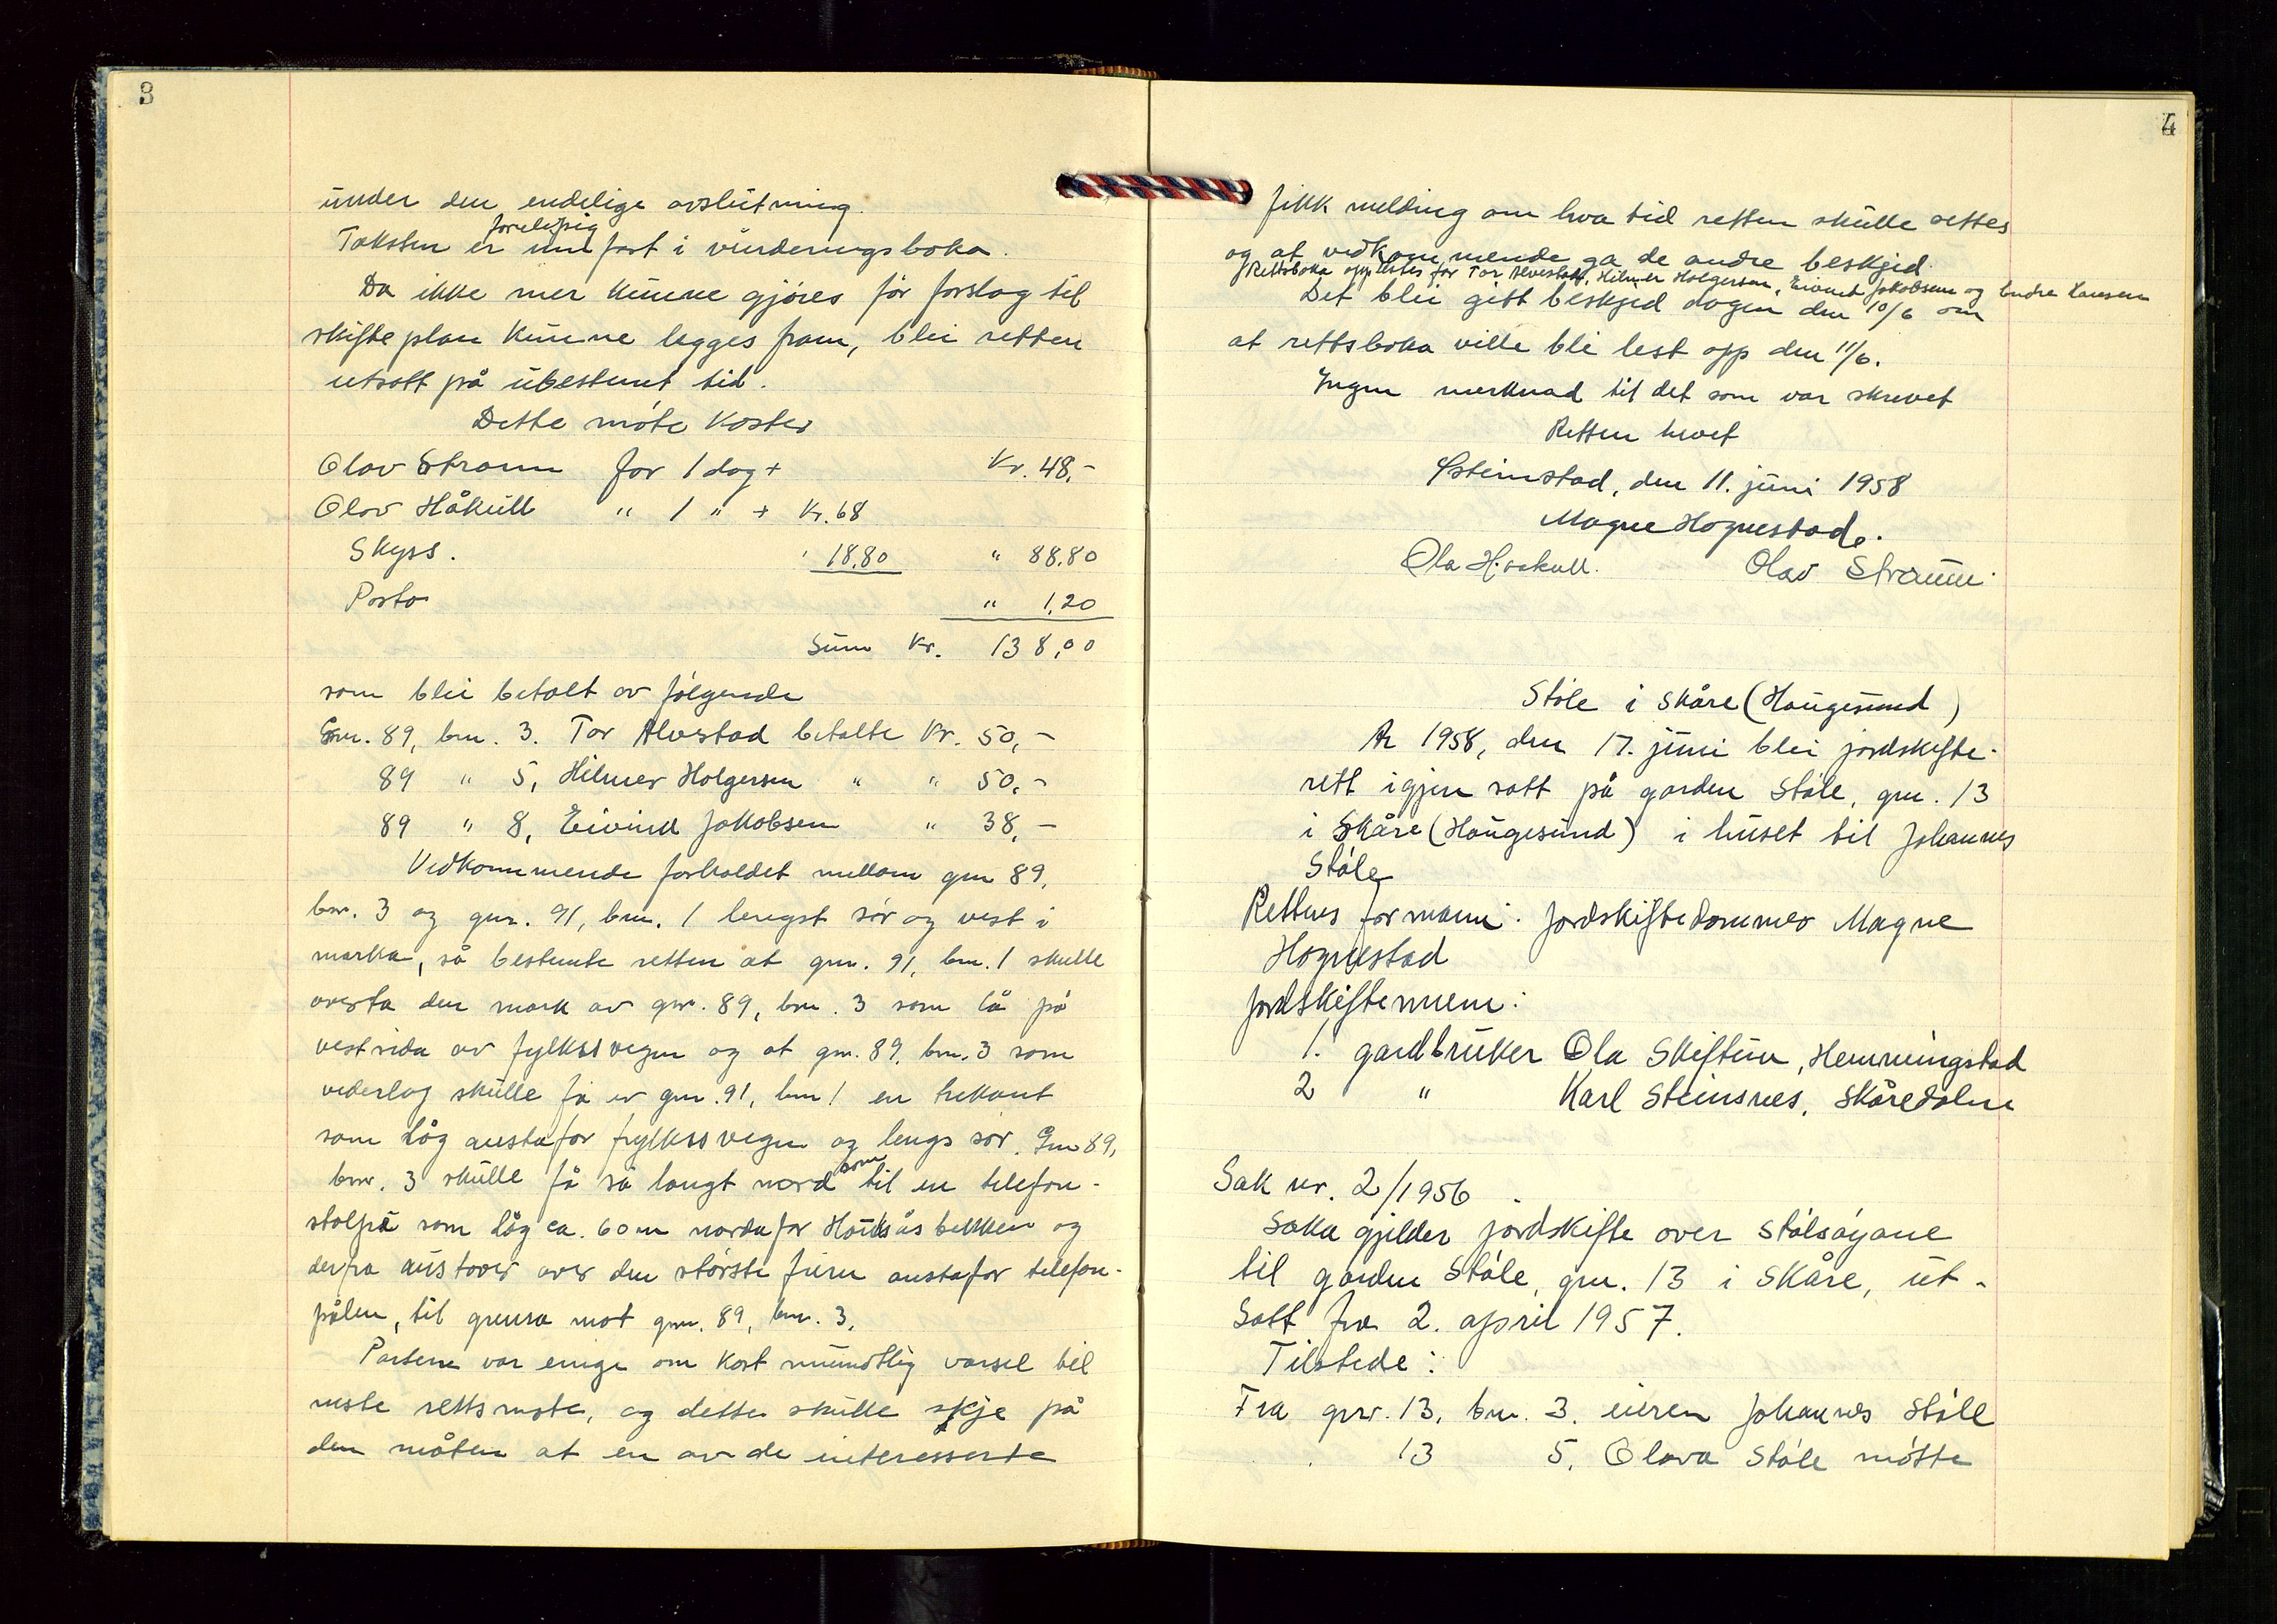 3
under den endelige avslutning.
forelöpig
Taksten er innført i vurderingsboka.
Da ikke mer kunne gjöres för forslag til
skifteplan kunne legges fram, blei retten
utsatt på ubestemt tid.
Dette möte koster
Olav Straum for 1 dag + Kr. 48,-
Olav Håkull " 1 " + Kr. 68
Skyss. 18,80 " 88,80
Porto " 1,20
Sum Kr. 138,00
som blei betalt av fölgende
Gnr. 89, bnr. 3. Tor Alvestad betalte Kr. 50,-
89 " 5, Hilmer Holgersen " " 50,-
89 " 8, Eivind Jakobsen " 38,-
Vedkommende forholdet mellom gnr 89,
bnr. 3 og gnr. 91, bnr. 1 lengst sör og vest i
marka, så bestemte retten at gnr. 91, bnr. 1 skulle
overta den mark av gnr. 89, bnr. 3 som lå på
vestsida av fylkesvegen og at gnr. 89, bnr. 3 som
vederlag skulle få av gnr. 91, bnr 1 en trekant
som låg austafor fylkesvegen og lengs sör. Gnr 89,
bnr. 3 skulle få så langt nord som til en telefon-
stolpe som låg ca. 60 m nordafor bekken og
derfra austover over den störste furu austafor telefon-
pålen, til grensa mot gnr. 89, bnr. 3.
Partene var enige om kort muntlig varsel til
neste rettsmöte, og dette skulle skje på
den måten at en av de interesserte
4
fikk melding om hva tid retten skulle settes
og at vedkommende ga de andre beskjed.
Rettsboka opplestes for Tor Alvestad, Hilmer Holgersen, Eivind Jakobsen og Endre Hansen
Det blei gitt beskjed dagen den 10/6 om
at rettsboka ville bli lest opp den 11/6.
Ingen merknad til det som var skrevet
Retten hevet
den 11. juni 1958
Magne Hognestad.
Ola Håkull. Olav Straum.
Ståle i Skåre (Haugesund)
År 1958, den 17. juni blei jordskifte-
rett igjen satt på garden Ståle, gnr. 13
i Skåre (Haugesund) i huset til Johannes
Ståle
Rettens formann: Jordskiftedommer Magne
Hognestad
Jordskiftemenn:
1. gardbruker Ola Skiftun, Hemmingstad
2 " Karl Steinsnes, Skåredalen
Sak nr. 2/1956.
Saka gjelder jordskifte over Stålsöyane
til garden Ståle, gnr. 13 i Skåre, ut-
satt fra 2. april 1957.
Tilstede:
Fra gnr. 13, bnr. 3. eieren Johannes Ståle
13 5. Olava Ståle mötte